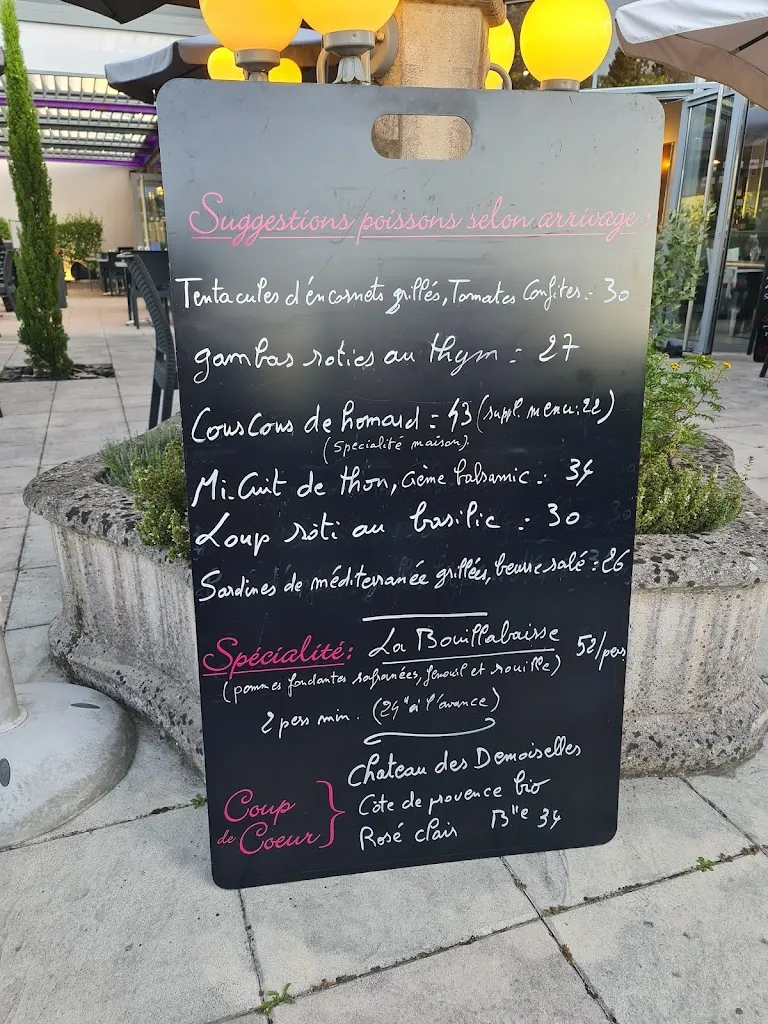 Suggestions poissons selon arrivage :
Tentacules d'encornets grillés, Tomates Confites :- 30
gambas roties au thym : 27
CousCous de homard : 43 (suppl. menu : 22)
(Spécialité maison)
Mi.Cuit de thon, crème balsamic : 34
Loup rôti au basilic : 30
Sardines de méditerranée grillées, beurre salé : 26
Spécialité: La Bouillabaisse 52/pers
(pommes fondantes safranées, fenouil et rouille)
2 pers min. (24H à l'avance)
Coup de Coeur }
Chateau des Demoiselles
Côte de provence bio
Rosé clair Blle 34